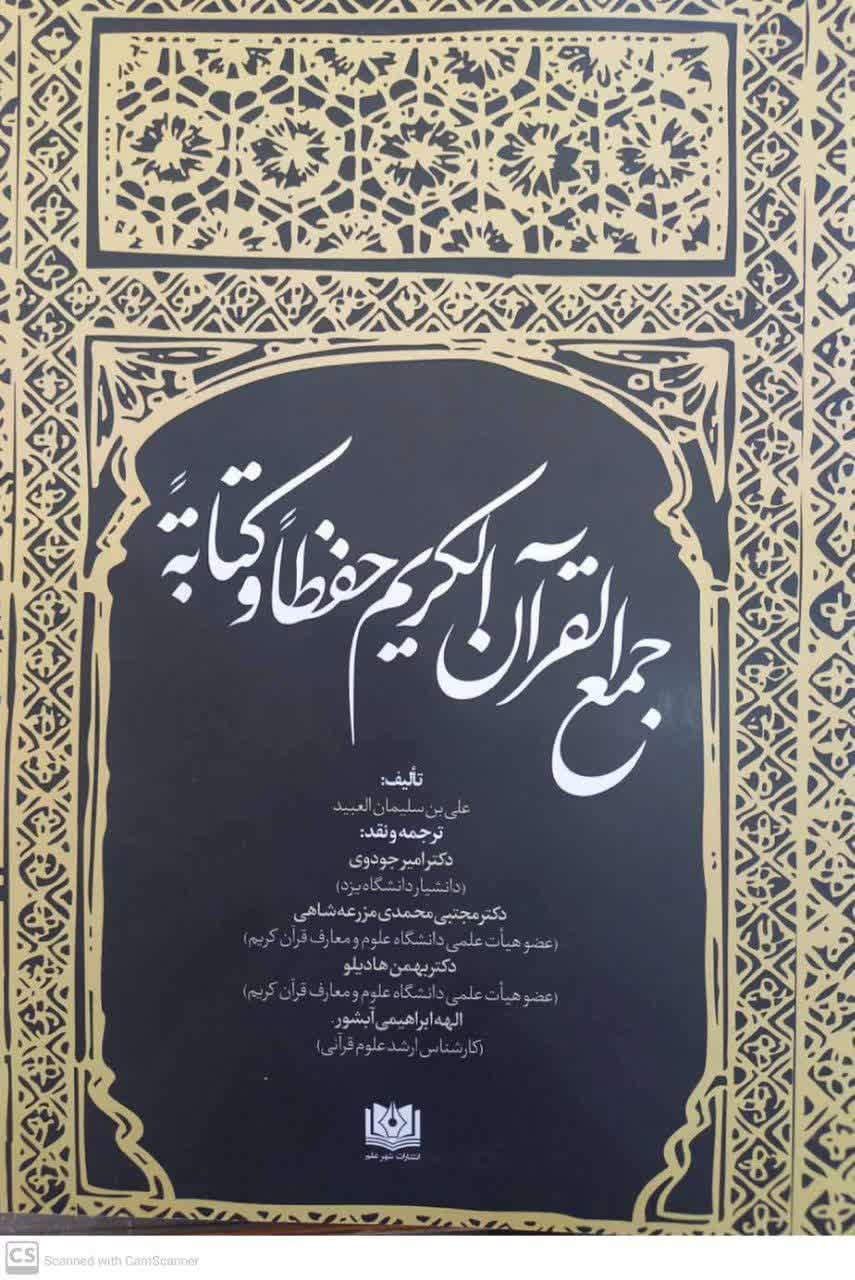 جمع القرآن الکریم حفظاً و کتابةً
تألیف:
علی بن سلیمان العبید
ترجمه و نقد:
دکتر امیر جودوی
(دانشیار دانشگاه یزد)
دکتر مجتبی محمدی مزرعه شاهی
(عضو هیأت علمی دانشگاه علوم و معارف قرآن کریم)
دکتر بهمن هادیلو
(عضو هیأت علمی دانشگاه علوم و معارف قرآن کریم)
الهه ابراهیمی آبشور.
(کارشناس ارشد علوم قرآنی)
انتشارات شهر علم
CS Scanned with CamScanner